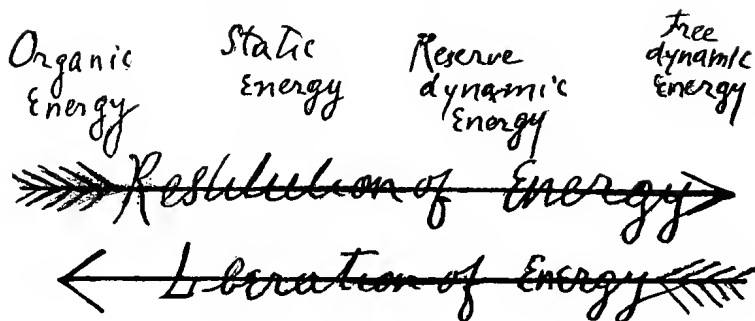 Organic
Energy
Static
Energy
Reserve
dynamic
Energy
Free
dynamic
Energy
Restitution of Energy
Liberation of Energy